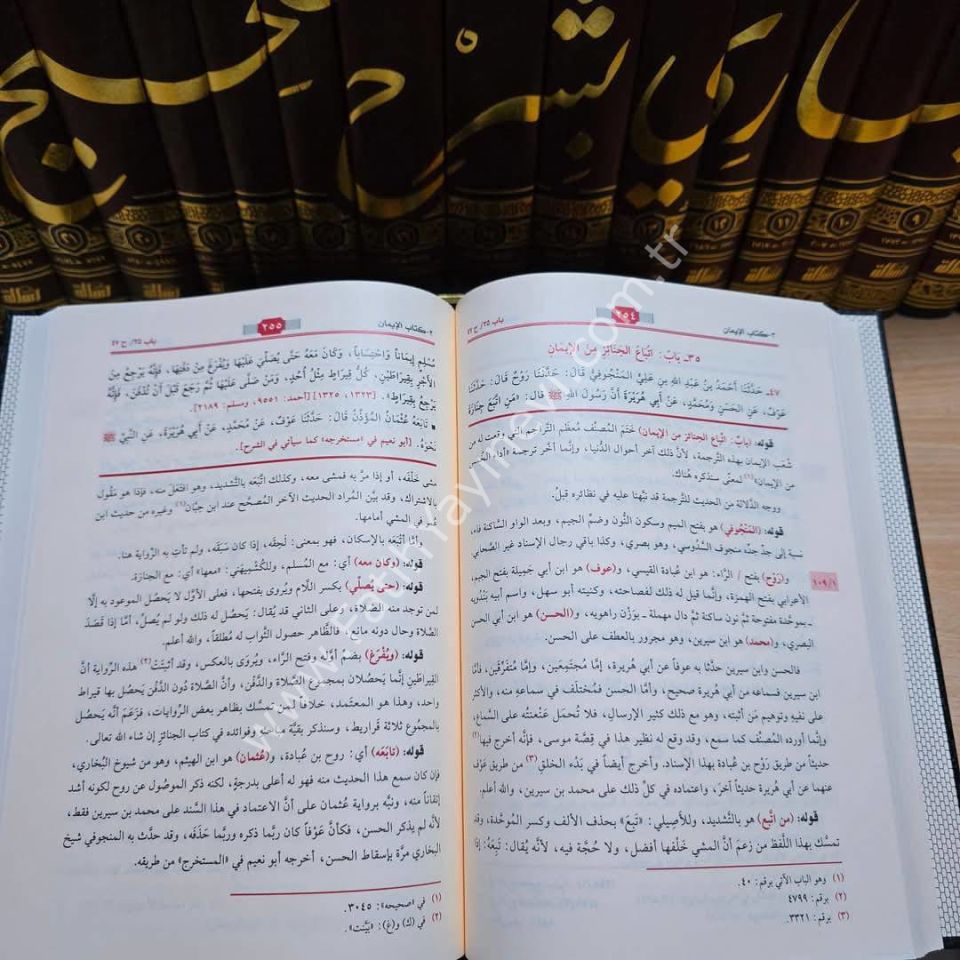 باري شرح صحيح
٢- كتاب الإيمان
٢٥٤
باب ٣٥/ ح ٤٧
٣٥- بَابٌ: اتِّبَاعُ الجَنَائِزِ مِنَ الإِيمَانِ
٤٧- حَدَّثَنَا أَحْمَدُ بْنُ عَبْدِ اللهِ بْنِ عَلِيٍّ المَنْجُوفِيُّ قَالَ: حَدَّثَنَا رَوْحٌ قَالَ: حَدَّثَنَا
عَوْفٌ، عَنِ الحَسَنِ وَمُحَمَّدٍ، عَنْ أَبِي هُرَيْرَةَ أَنَّ رَسُولَ اللهِ ﷺ قَالَ: «مَنِ اتَّبَعَ جَنَازَةَ
قوله: (بابٌ: اتباع الجنائز من الإيمان) خَتَمَ المصنِّف مُعظَم التَّراجم التي وقعت له من
شُعَب الإيمان بهذه الترجمة، لأنَّ ذلك آخر أحوال الدُّنيا، وإنما أخَّر ترجمة «أداء الخُمُس
من الإيمان»(١) لمعنًى سنذكره هُناك.
ووجه الدَّلالة من الحديث للتَّرجمة قد نبَّهنا عليه في نظائره قبلُ.
قوله: (المَنْجُوفي) هو بفتح الميم وسكون النُّون وضمِّ الجيم، وبعد الواو السَّاكنة فاء،
نسبة إلى جدِّ جدِّه منجوف السَّدُوسي، وهو بصري، وكذا باقي رجال الإسناد غير الصَّحابي
و(رَوْح) بفتح / الرَّاء: هو ابن عُبادة القيسي، و(عوف) هو ابن أبي جَميلة بفتح الجيم،
١٠٩/١
الأعرابي بفتح الهمزة، وإنَّما قيل له ذلك لفصاحته، وكنيته أبو سهل، واسم أبيه بَنْدُويه
ـ بموحَّدة مفتوحة ثمَّ نون ساكنة ثمَّ دال مهملة - بوَزْن راهويه، و(الحسن) هو ابن أبي الحسن
البصري، و(محمد) هو ابن سيرين، وهو مجرور بالعطف على الحسن.
فالحسن وابن سيرين حدَّثا به عوفاً عن أبي هُريرة، إمَّا مُجتَمِعَين، وإمَّا مُتفرِّقَين، فأمَّا
ابن سيرين فسماعه من أبي هُريرة صحيح، وأمَّا الحسن فمُختلَف في سماعِه منه، والأكثر
على نفيِه وتوهيمِ مَن أثبته، وهو مع ذلك كثير الإرسال، فلا تُحمَل عَنعَنتُه على السَّماع،
وإنَّما أورده المصنِّف كما سمع، وقد وقع له نظير هذا في قِصَّة موسى، فإنَّه أخرج فيها(٢)
حديثاً من طريق رَوْح بن عُبادة بهذا الإسناد. وأخرج أيضاً في بَدْء الخلق(٣) من طريق عَوْف
عنهما عن أبي هُريرة حديثاً آخرَ، واعتماده في كلِّ ذلك على محمد بن سيرين، والله أعلم.
قوله: (من اتَّبع) هو بالتَّشديد، وللأَصِيلي: «تَبِعَ» بحذف الألف وكسر الموحَّدة، وقد
تمسَّك بهذا اللَّفظ من زعم أنَّ المشي خَلْفَها أفضل، ولا حُجَّة فيه، لأنَّه يُقال: تَبِعَهُ: إذا
(١) وهو الباب الآتي برقم: ٤٠.
(٢) برقم: ٤٧٩٩
(٣) برقم: ٣٣٢١.
٢- كتاب الإيمان
٢٥٥
باب ٣٥/ ح ٤٧
مُسْلِمٍ إِيمَاناً وَاحْتِسَاباً، وَكَانَ مَعَهُ حَتَّى يُصَلَّيَ عَلَيْهَا وَيَفْرُغَ مِنْ دَفْنِهَا، فَإِنَّهُ يَرْجِعُ مِنَ
الأَجْرِ بِقِيرَاطَيْنِ، كُلُّ قِيرَاطٍ مِثْلُ أُحُدٍ، وَمَنْ صَلَّى عَلَيْهَا ثُمَّ رَجَعَ قَبْلَ أَنْ تُدْفَنَ، فَإِنَّهُ
يَرْجِعُ بِقِيرَاطٍ». [١٣٢٣، ١٣٢٥] [أحمد: ٩٥٥١، ومسلم: ٢١٨٩].
▪ تَابَعَهُ عُثْمَانُ المُؤَذِّنُ قَالَ: حَدَّثَنَا عَوْفٌ، عَنْ مُحَمَّدٍ، عَنْ أَبِي هُرَيْرَةَ، عَنِ النَّبِيِّ ﷺ
نَحْوَهُ. [أبو نعيم في «مستخرجه» كما سيأتي في الشرح].
مشى خَلْفَه، أو إذا مرَّ به فمشى معه، وكذلك اتَّبَعَه بالتَّشديد، وهو افتَعَلَ منه، فإذاً هو مَقُول
بالاشتراك، وقد بيَّن المراد الحديث الآخر المصحَّح عند ابن حِبَّان(١) وغيره من حديث ابن
عُمر في المشي أمامها.
وأمَّا أتْبَعَه بالإسكان، فهو بمعنى: لَحِقَه، إذا كان سَبَقَه، ولم تأتِ به الرِّواية هنا.
قوله: (وكان معه) أي: مع المُسلم، وللكُشْمِيهَني: «معها» أي: مع الجنازة.
قوله: (حتى يُصلَّى) بكسر اللَّام ويُروى بفتحها، فعلى الأوَّل لا يَحصُل الموعود به إلَّا
لمن توجد منه الصَّلاة، وعلى الثاني قد يُقال: يَحصُل له ذلك ولو لم يُصلِّ، أمَّا إذا قَصَدَ
الصَّلاة وحال دونه مانع، فالظَّاهر حصول الثَّواب له مُطلَقاً، والله أعلم.
قوله: (ويُفْرَغ) بضم أوَّله وفتح الرَّاء، ويُروَى بالعكس، وقد أثبتَتْ(٢) هذه الرِّواية أنَّ
القِيراطَين إنَّما يَحصُلان بمجموع الصَّلاة والدَّفْن، وأنَّ الصَّلاة دُون الدَّفْن يَحصُل بها قيراط
واحد، وهذا هو المعتمَد، خلافاً لمن تمسَّك بظاهر بعض الرِّوايات، فزَعَمَ أنَّه يَحصُل
بالمجموع ثلاثة قَراريط، وسنذكر بقيَّة مباحثه وفوائده في كتاب الجنائز إن شاء الله تعالى.
قوله: (تابَعَه) أي: روح بن عُبادة، و(عُثمان) هو ابن الهيثم، وهو من شيوخ البُخاري،
فإن كان سمع هذا الحديث منه فهو له أعلى بدرجةٍ، لكنه ذكر الموصُول عن روح لكونه أشد
إتقاناً منه، ونبَّه برواية عُثمان على أنَّ الاعتماد في هذا السَّند على محمد بن سيرين فقط،
لأنَّه لم يذكر الحسن، فكأنَّ عَوْفاً كان ربَّما ذكره وربَّما حَذَفَه، وقد حدَّث به المنجوفي شيخ
البخاري مرَّة بإسقاط الحسن، أخرجه أبو نعيم في «المستخرج» من طريقه.
(١) في «صحيحه»: ٣٠٤٥.
(٢) في (ك) و(غ): «بَيَّنت».
www.fatihyayinevi.com.tr